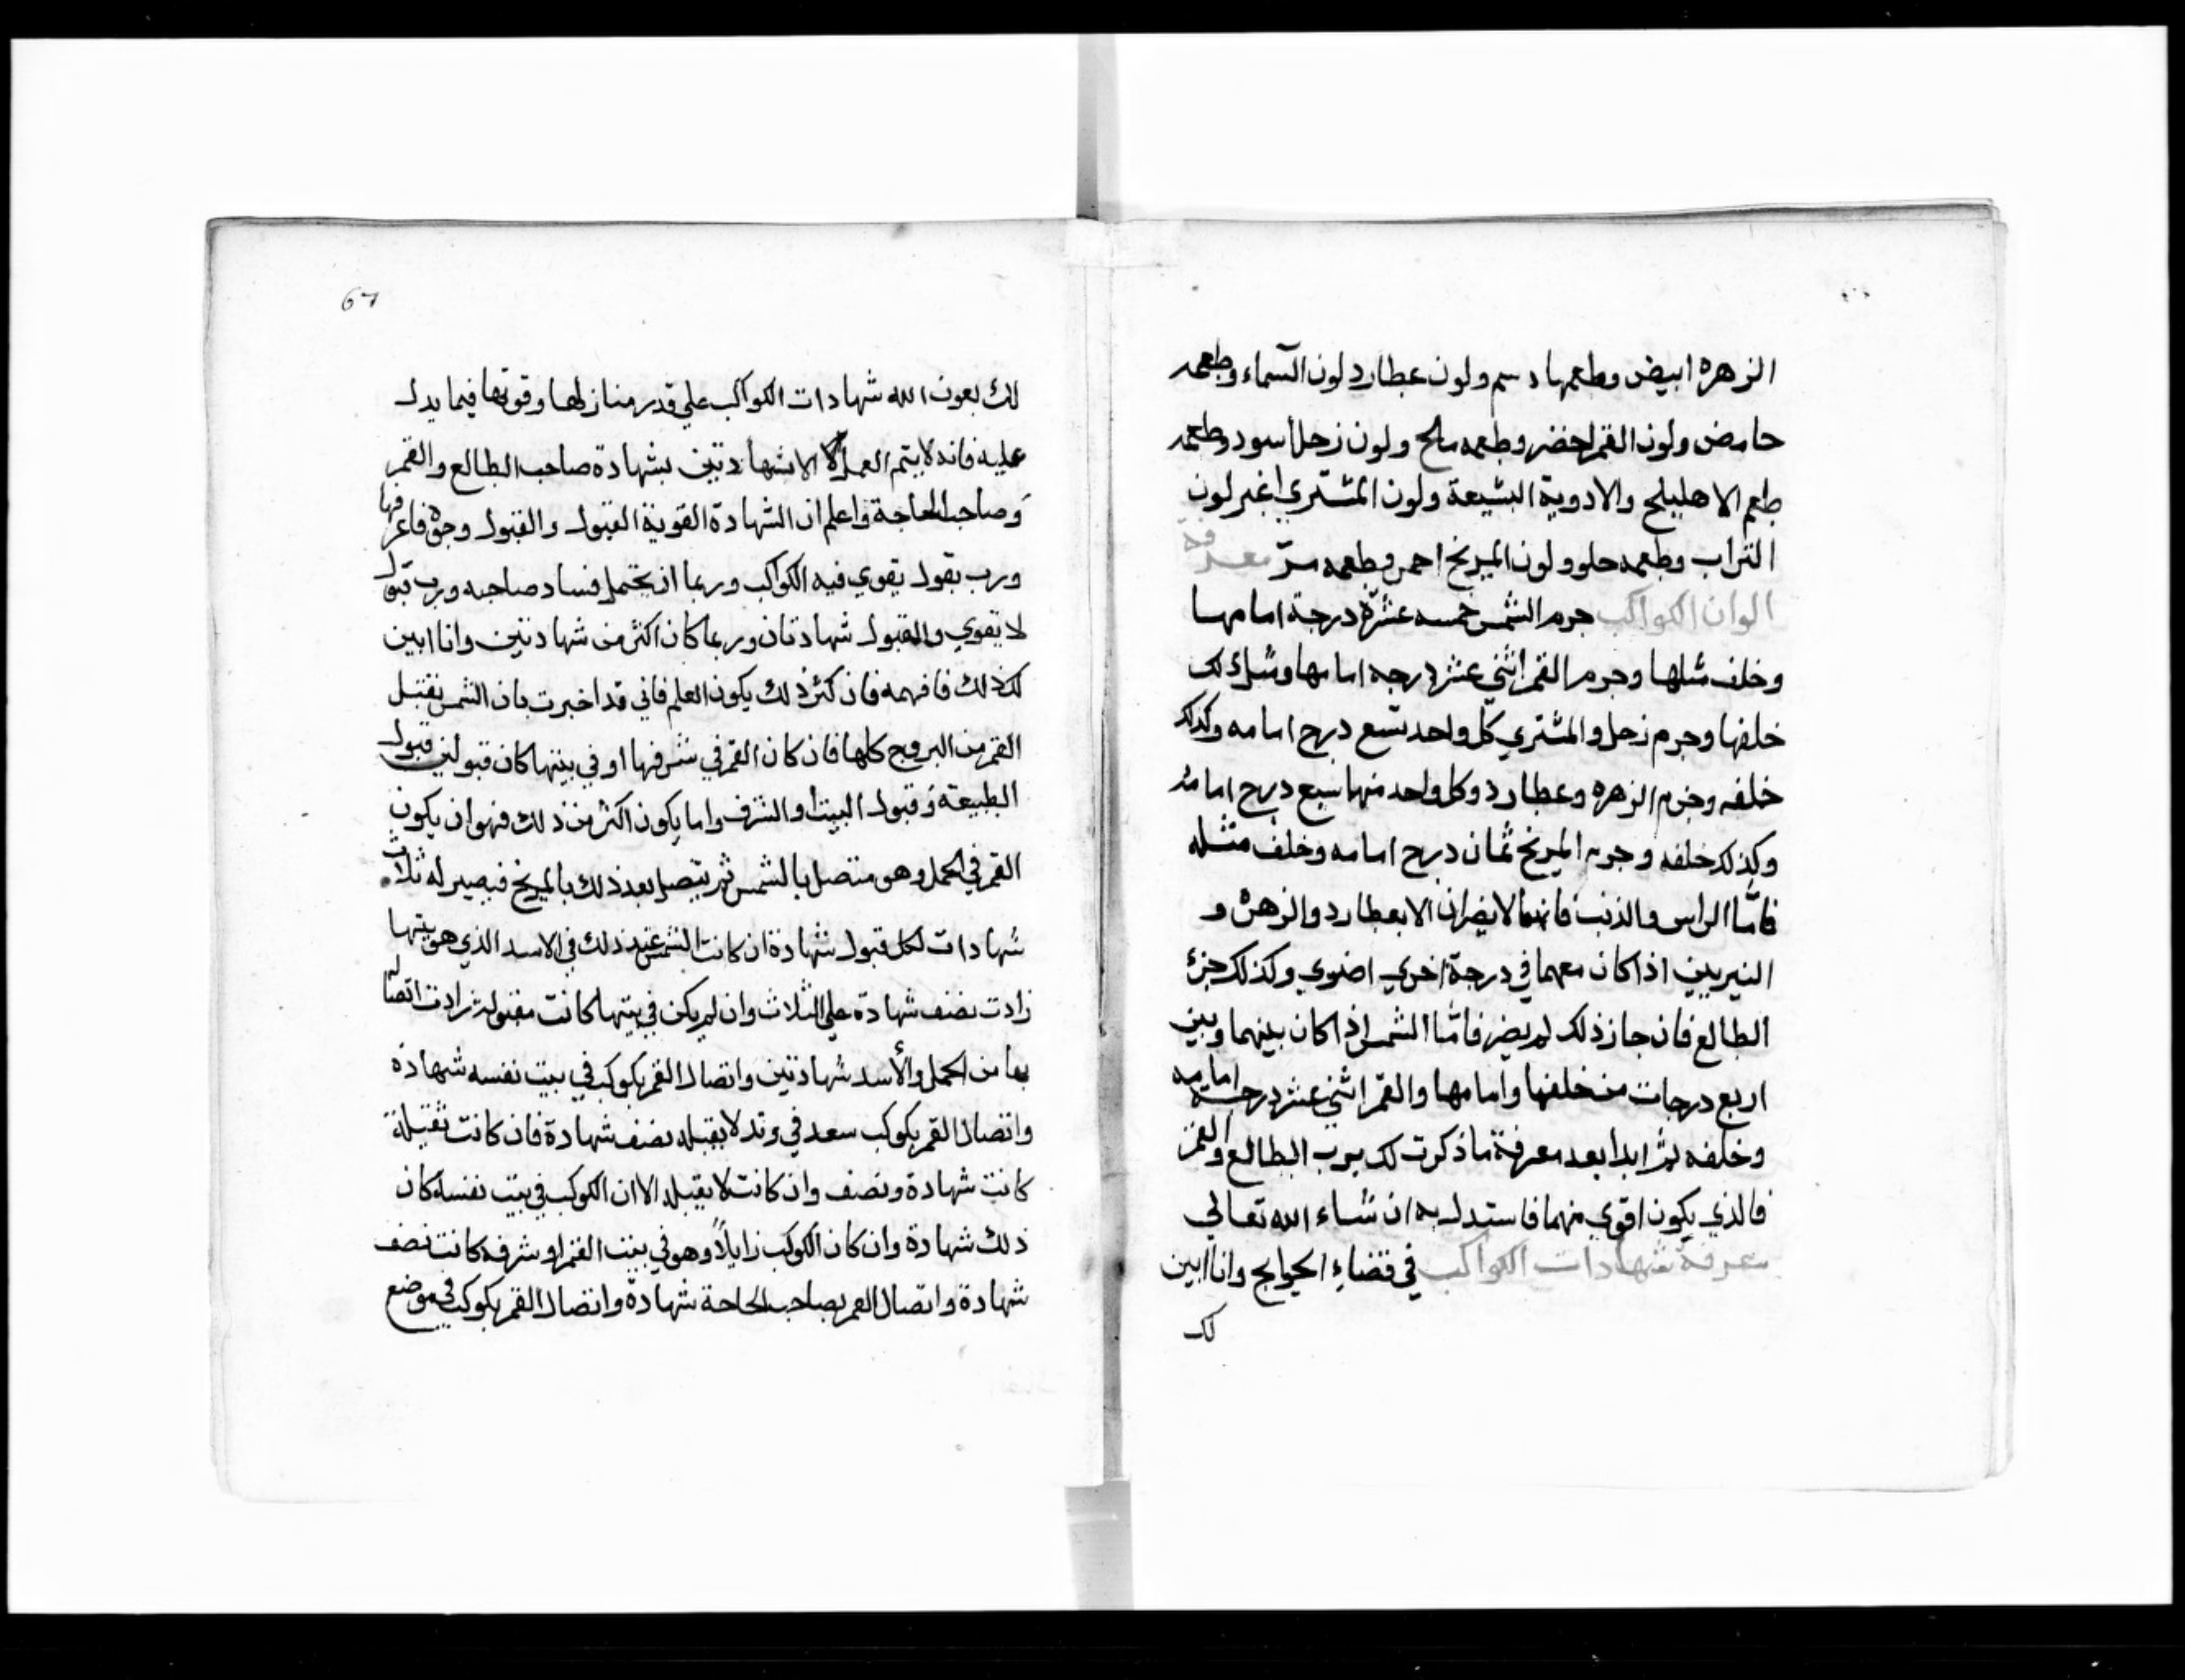 الزهره ابيض وطعمها دسم ولون عطارد لون السماء وطعمه
حامض ولون القمر اخضر وطعمه مالح ولون زحل اسود وطعمه
طعم الاهليلج والادوية البشيعة ولون المشتري اغبر لون
التراب وطعمه حلو ولون المريخ احمر وطعمه مرّ معرفة
الوان الكواكب جرم الشمس خمسه عشرة درجة امامها
وخلف مثلها وجرم القمر اثني عشر درجه امامها ومثل ذلك
خلفها وجرم زحل والمشتري كل واحد تسع درج امامه وكذلك
خلفه وجرم الزهره وعطارد وكل واحد منها سبع درج امامه
وكذلك خلفه وجرم المريخ ثمان درج امامه وخلف مثله
فامّا الراس والذنب فانهما لا يضران الا بعطارد والزهرة و
النيريين اذا كان معهما في درجة اخري اضوي وكذلك جزئ
الطالع فان جاز ذلك لم يضر فامّا الشمس اذا كان بينهما وبين
اربع درجات من خلفها وامامها والقمر اثني عشر درجة امامه
وخلفه ثم ابدا بعد معرفة ما ذكرت لك برب الطالع والقمر
فالذي يكون اقوي منهما فاستدل به ان شاء الله تعالي
معرفة شهادات الكواكب في قضاءِ الحوايج وانا ابين
لك
67
لك بعون الله شهادات الكواكب علي قدر منازلها وقوتها فيما يدل
عليه فانه لا يتم العمل الا بشهادتين بشهادة صاحب الطالع والقمر
وصاحب الحاجة واعلم ان الشهادة القوية القبول والقبول وجوه فاعرفها
ورب بقول يقوي فيه الكواكب وربما ان يحتمل فساد صاحبه ورب قبول
لا يقوي والقبول شهادتان وربما كان اكثر من شهادتين وانا ابين
لك ذلك فافهمه فان كثر ذلك يكون العلم فاني قد اخبرت بان الشمس تقبل
القمر من البروج كلها فان كان القمر في شرفها او في بيتها كان قبولين قبول
الطبيعة وقبول البيت او الشرف واما يكون اكثر من ذلك فهو ان يكون
القمر في الحمل وهو متصل بالشمس ثم يتصل بعد ذلك بالمريخ فيصير له ثلاث
شهادات لكل قبول شهادة ان كانت الشمس عند ذلك في الاسد الذي هو بيتها
زادت نصف شهادة علي الثلاث وان لم يكن في بيتها كانت مقبولة زادت اتصال
بها من الحمل والأسد شهادتين واتصال القمر بكوكب في بيت نفسه شهادة
واتصال القمر بكوكب سعد في وتد لا يقبله نصف شهادة فان كانت تقبله
كانت شهادة ونصف وان كانت لا يقبله الا ان الكوكب في بيت نفسه كان
ذلك شهادة وان كان الكوكب زايلاً وهو في بيت القمر او شرفه كانت نصف
شهادة واتصال القمر بصاحب الحاجة شهادة واتصال القمر بكوكب في موضع